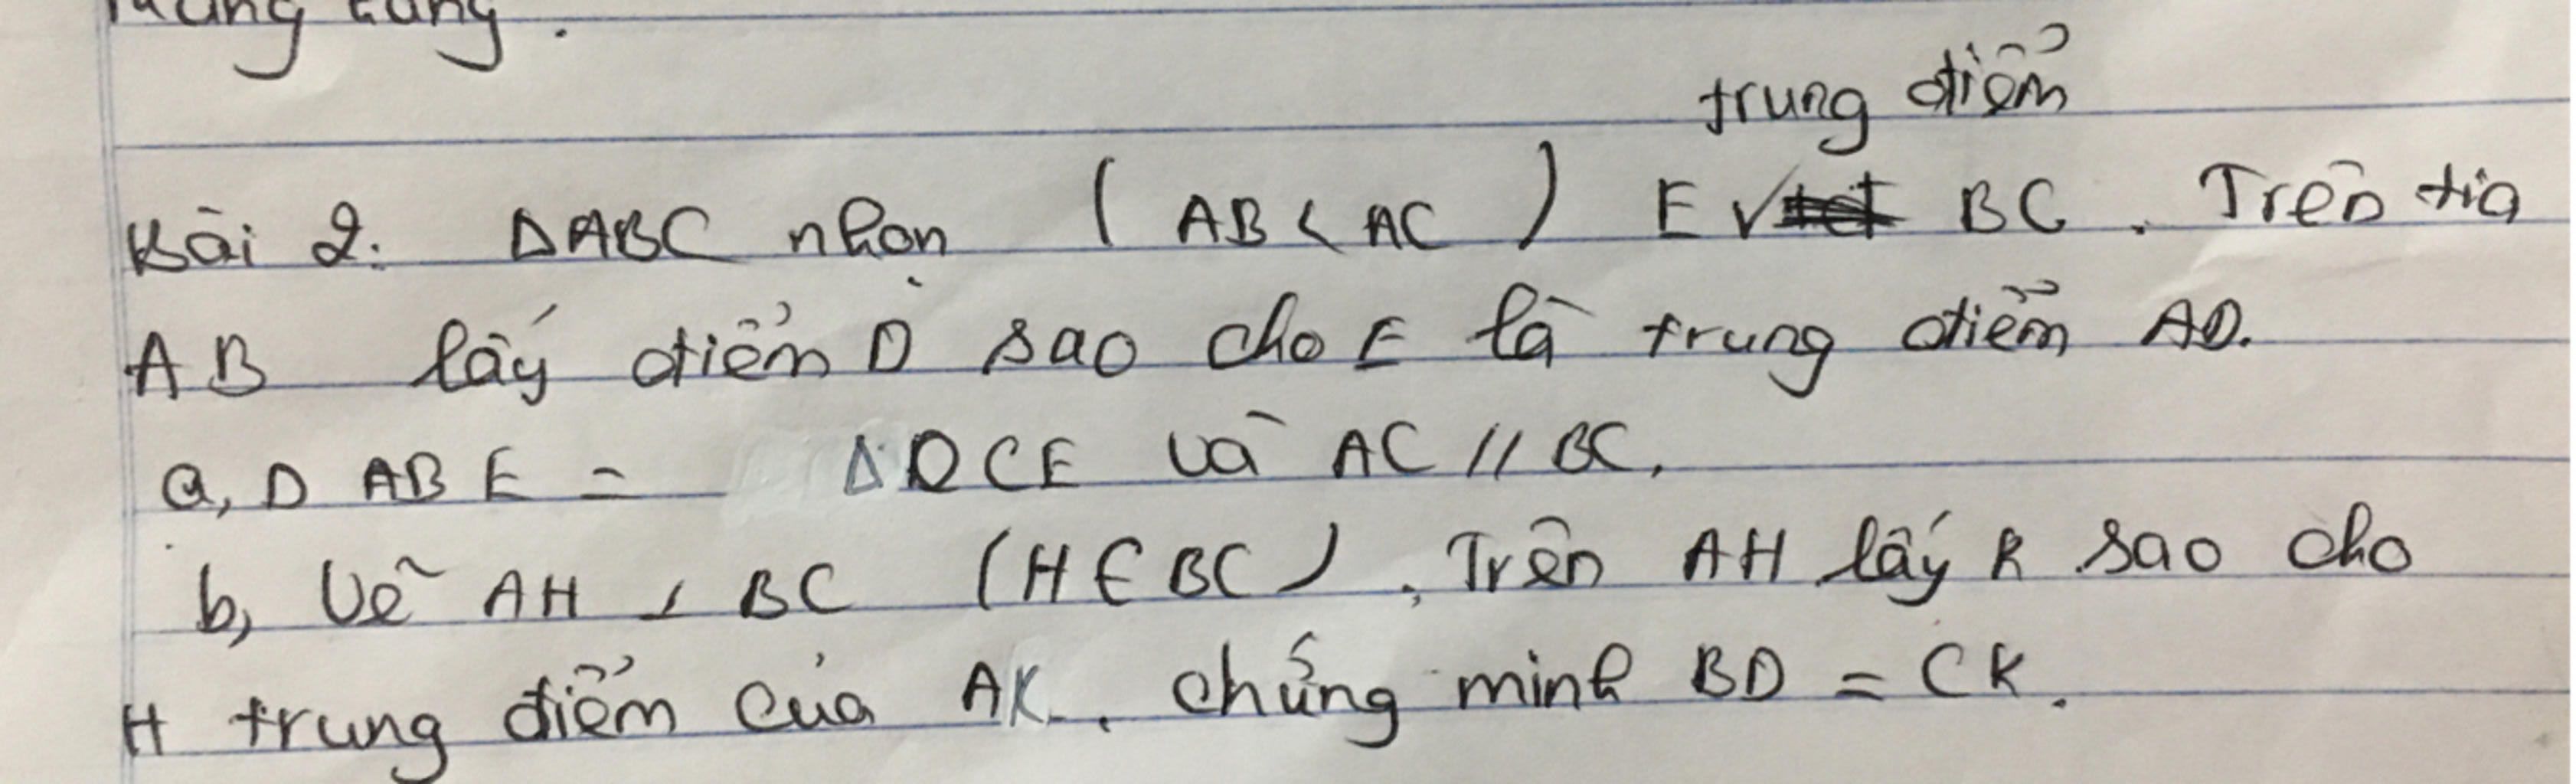 trung điểm
Bài 2: ΔABC nhọn ( AB < AC ) E √ BC. Trên tia
AB lấy điểm D sao cho E là trung điểm AD.
a, D ABE = ΔDCE và AC // BC.
b, Vẽ AH ⊥ BC (H ∈ BC). Trên AH lấy K sao cho
H trung điểm của AK. chứng minh BD = CK.